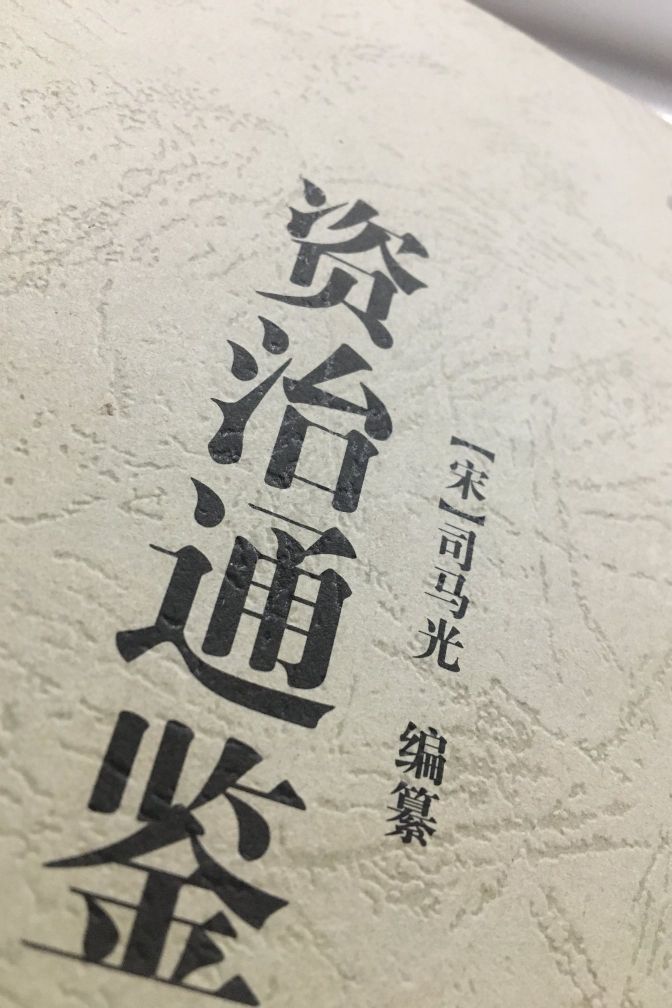 资治通鉴
【宋】司马光 编纂